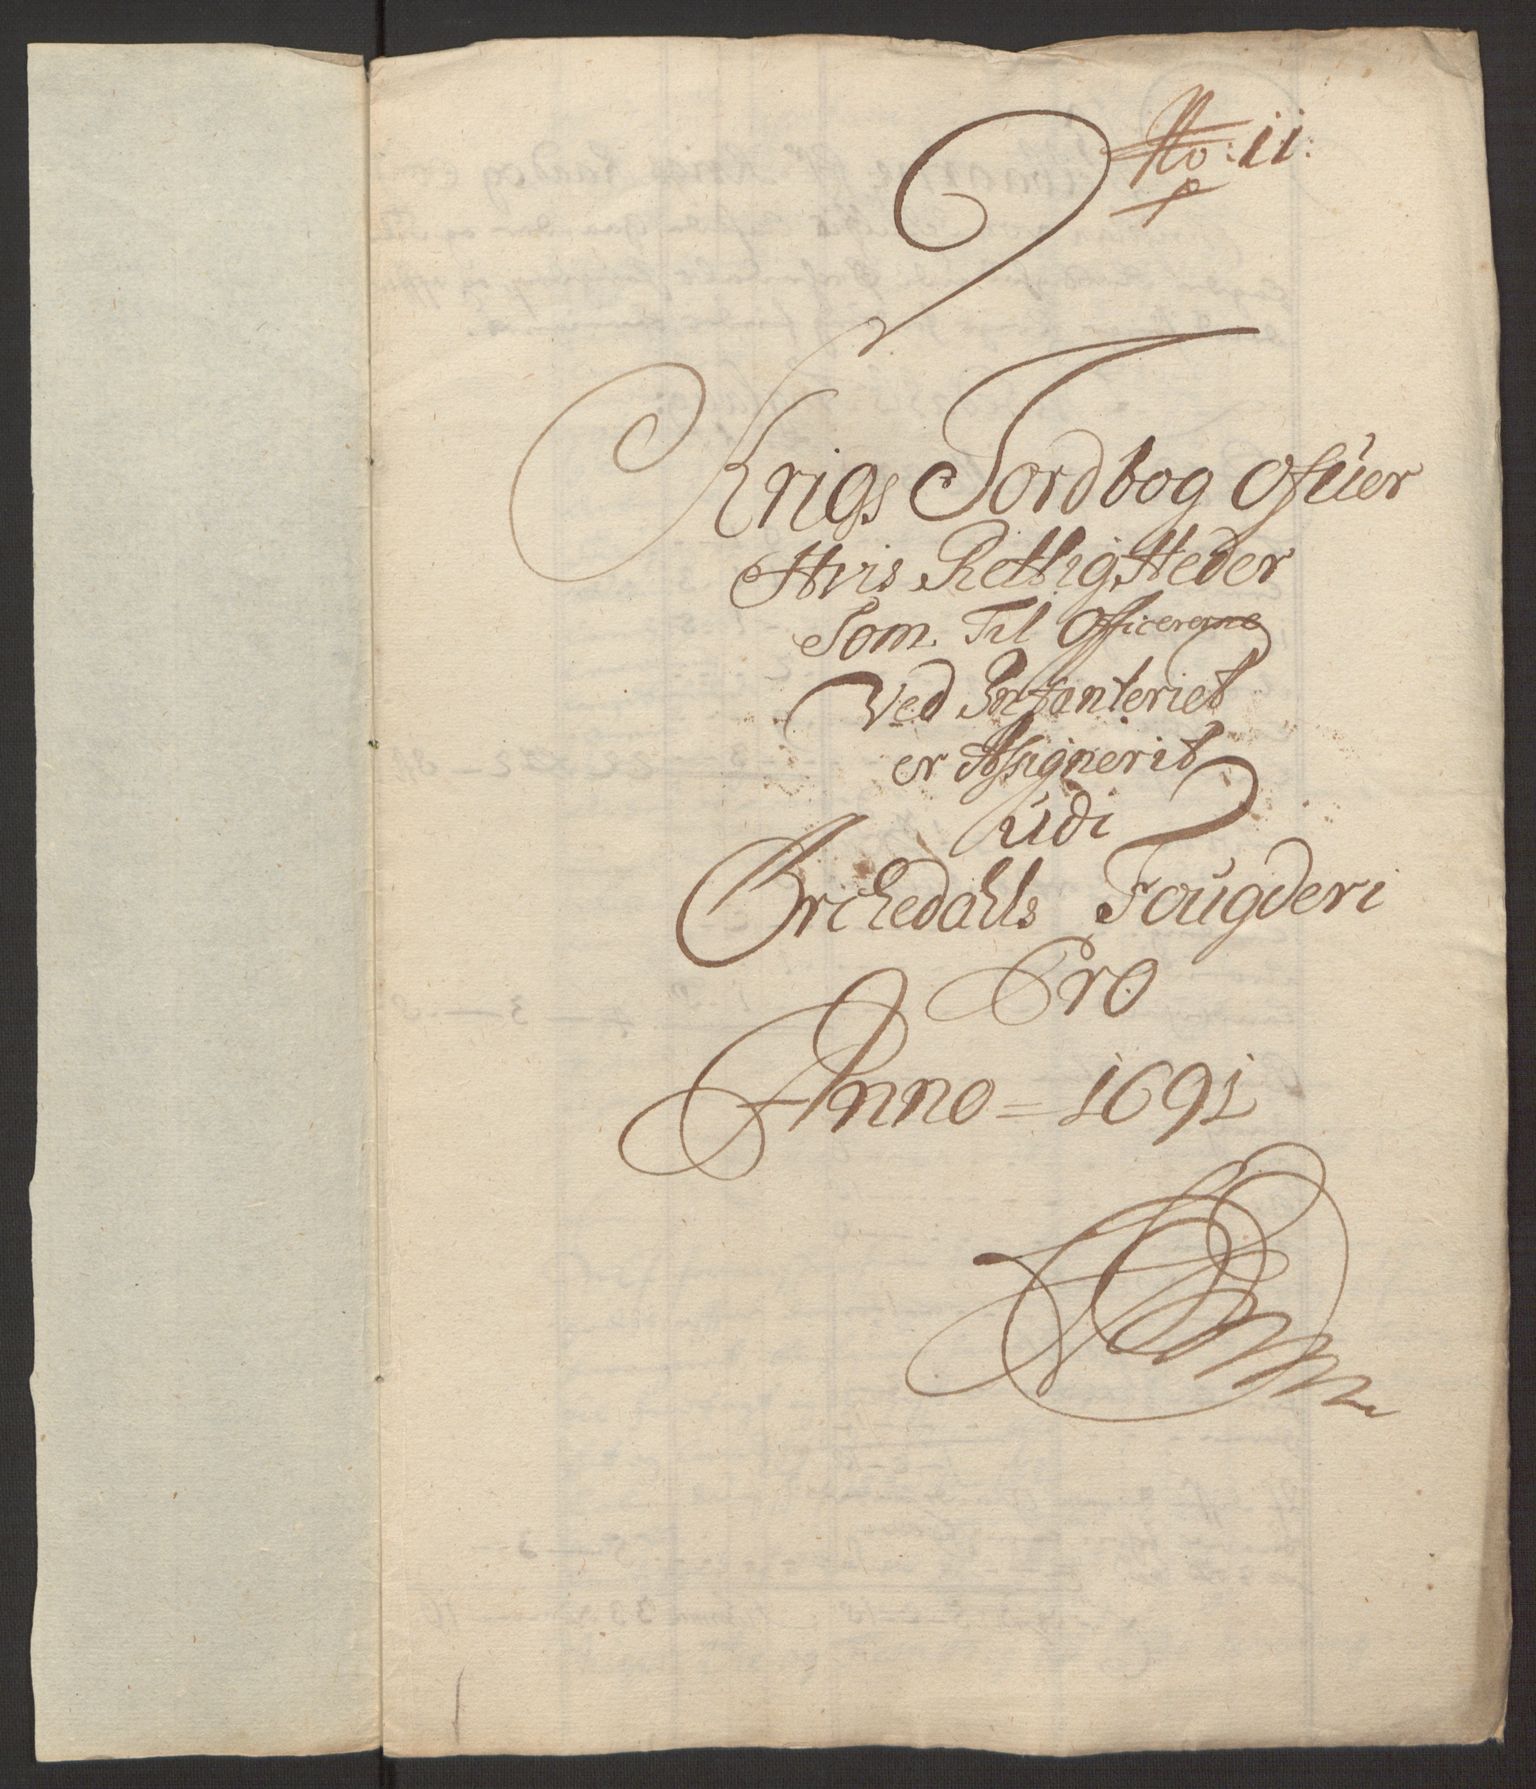 No: 11:
Krigs Jordbog ofúer
Hvis RettigHeder
Som Til Officererne
Ved Infanteriet
er Assignerit
údi
Orchedahls Foúgderi
Pro
Anno = 1691